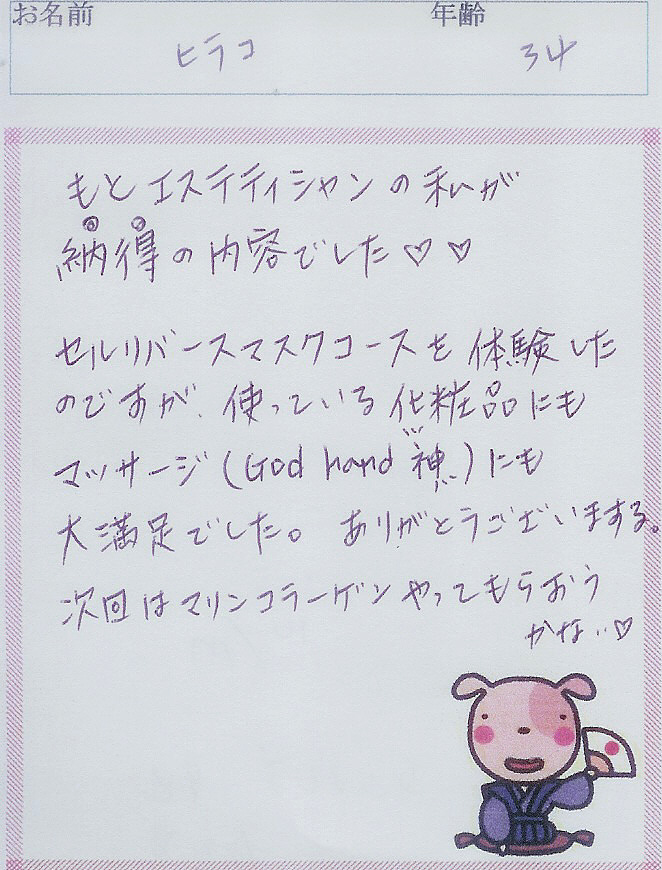 お名前 年齢
ヒラコ 34
もとエステティシャンの私が
納得の内容でした♡♡
セルリバースマスクコースを体験した
のですが、使っている化粧品にも
マッサージ(God hand 神)にも
大満足でした。ありがとうございまする。
次回はマリンコラーゲンやってもらおう
かな…♡